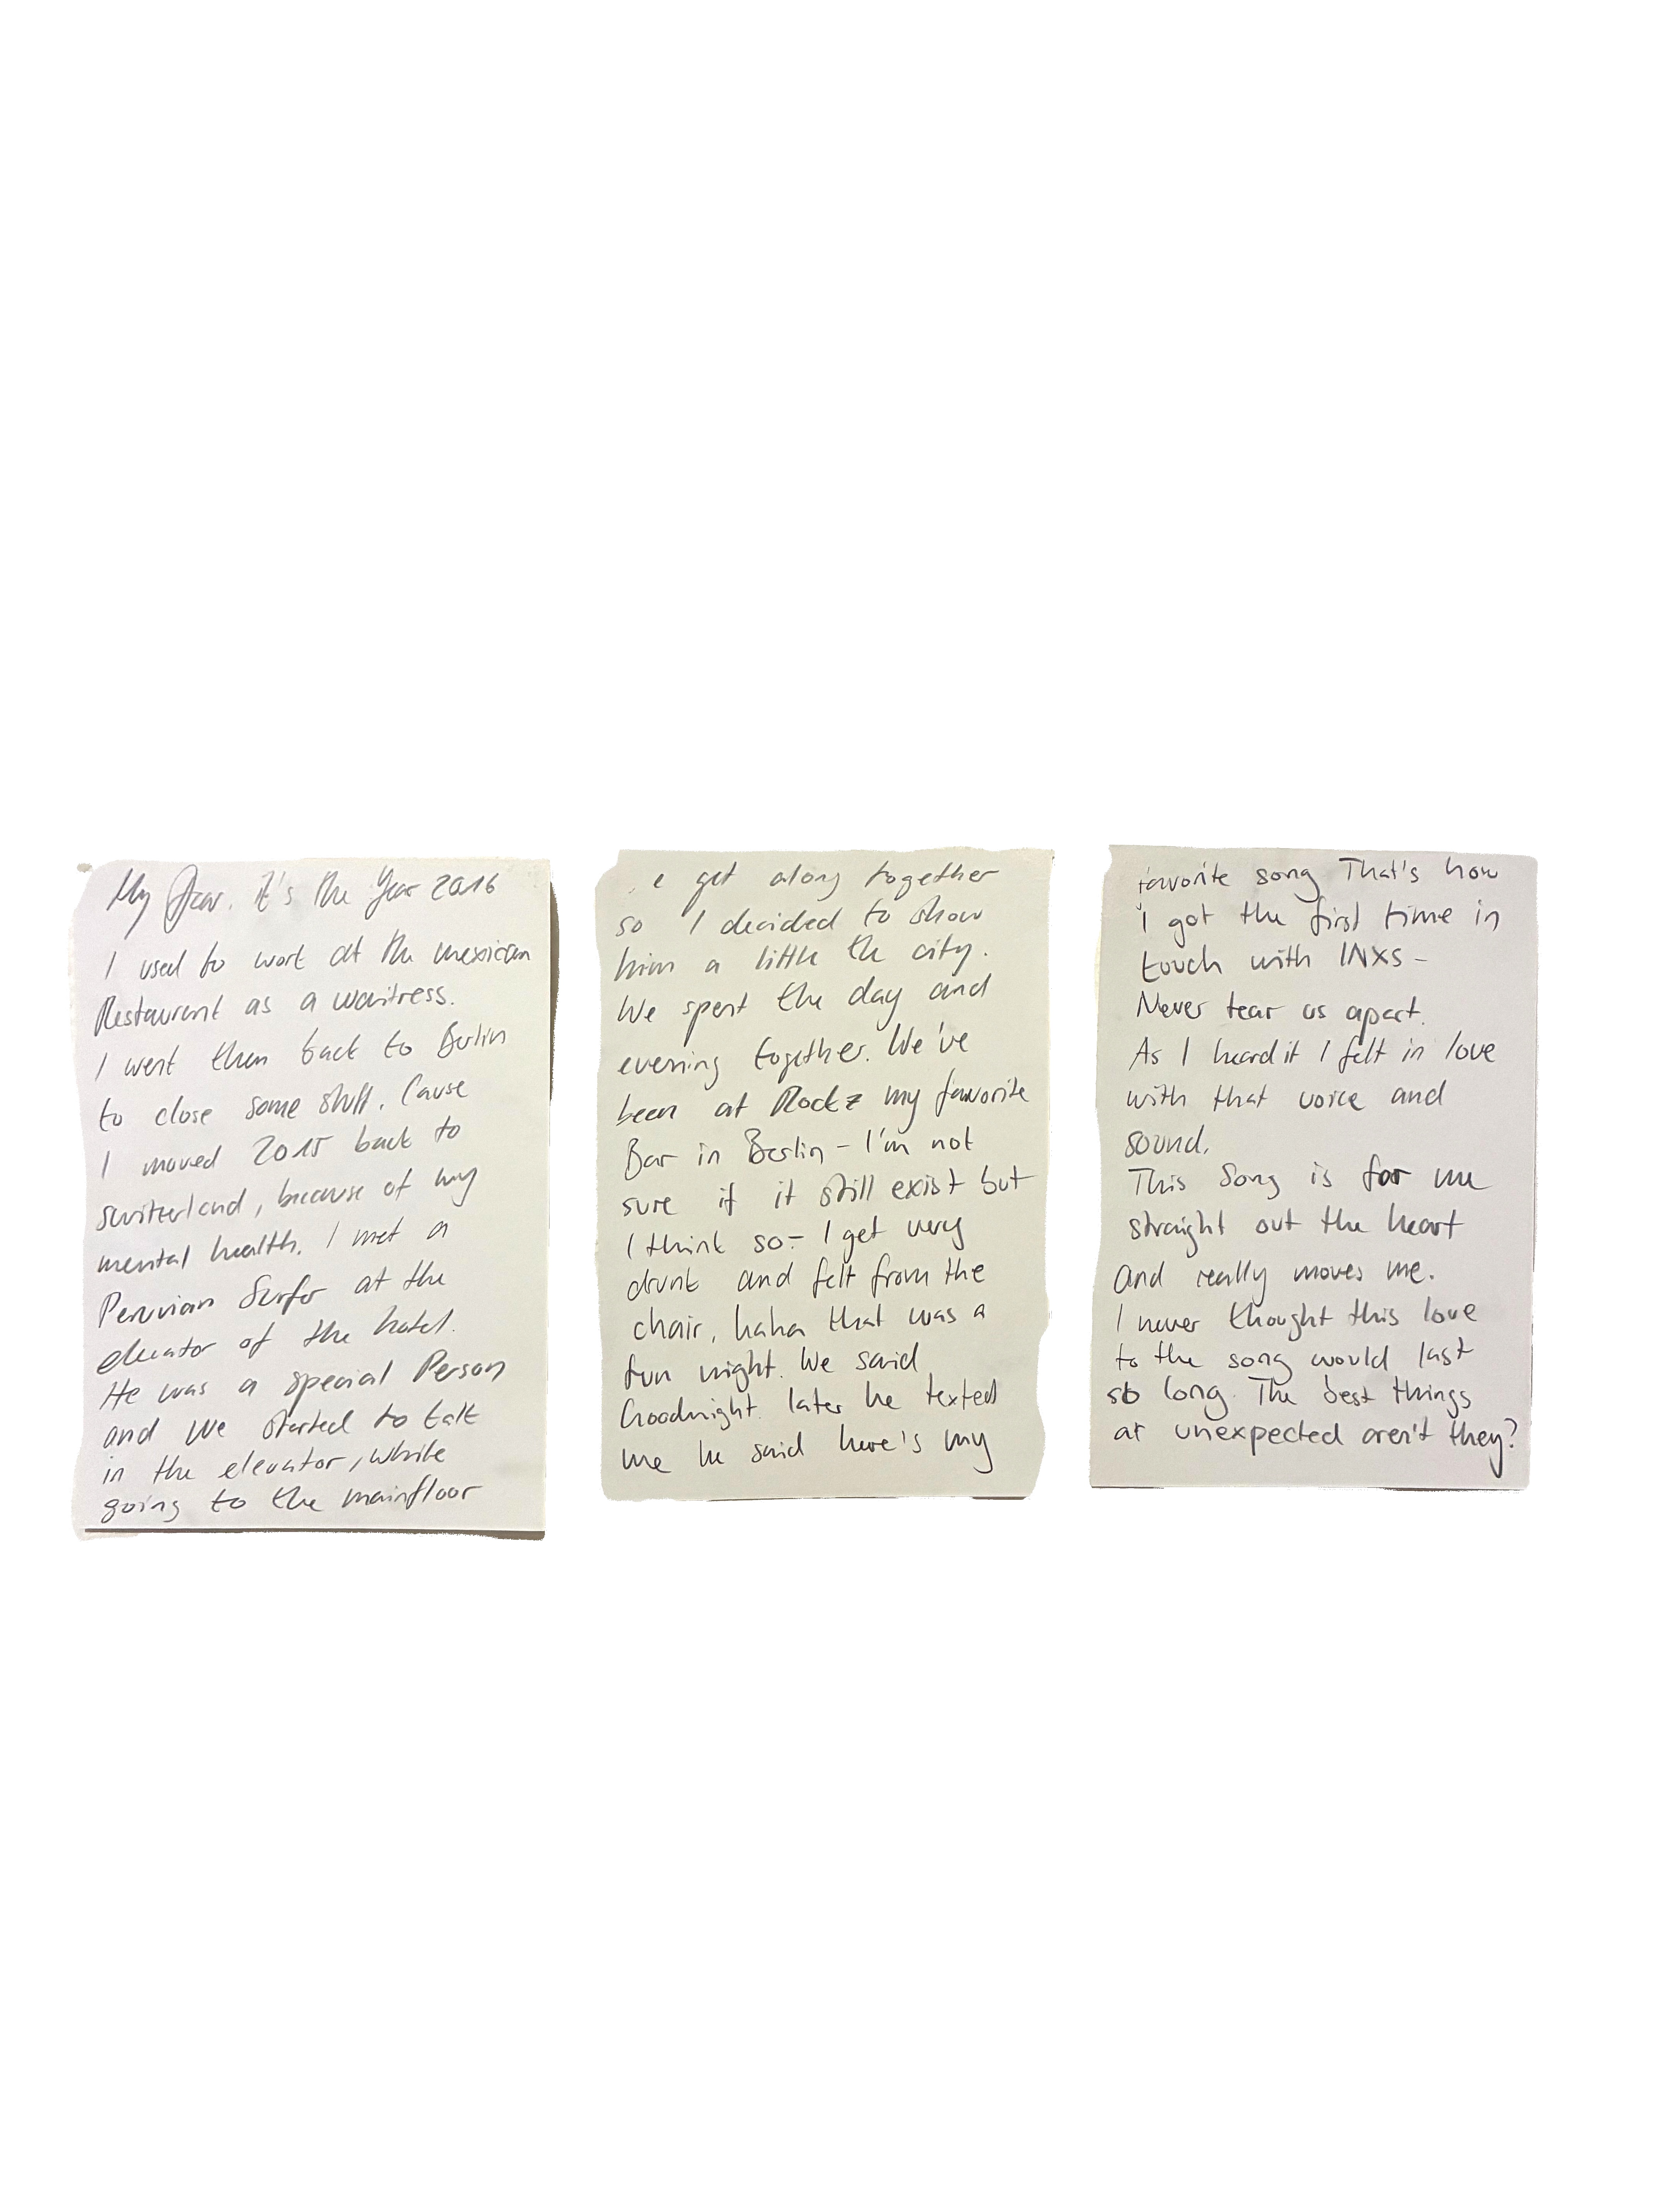 My Dear. It's the Year 2016
I used to work at the mexican
Restaurant as a waitress.
I went then back to Berlin
to close some stuff. Cause
I moved 2015 back to
switzerland, because of my
mental health. I met a
Peruvian Surfer at the
elevator of the hotel.
He was a special Person
and we started to talk
in the elevator, while
going to the mainfloor
e get along together
so I decided to show
him a little the city.
We spent the day and
evening together. We've
been at Rockz my favorite
Bar in Berlin - I'm not
sure if it still exist but
I think so - I get very
drunk and felt from the
chair, haha that was a
fun night. We said
Goodnight. later he texted
me he said here's my
favorite song That's how
I got the first time in
touch with INXS -
Never tear us apart.
As I heard it I felt in love
with that voice and
sound.
This Song is for me
straight out the heart
and really moves me.
I never thought this love
to the song would last
so long. The best things
ar unexpected aren't they?